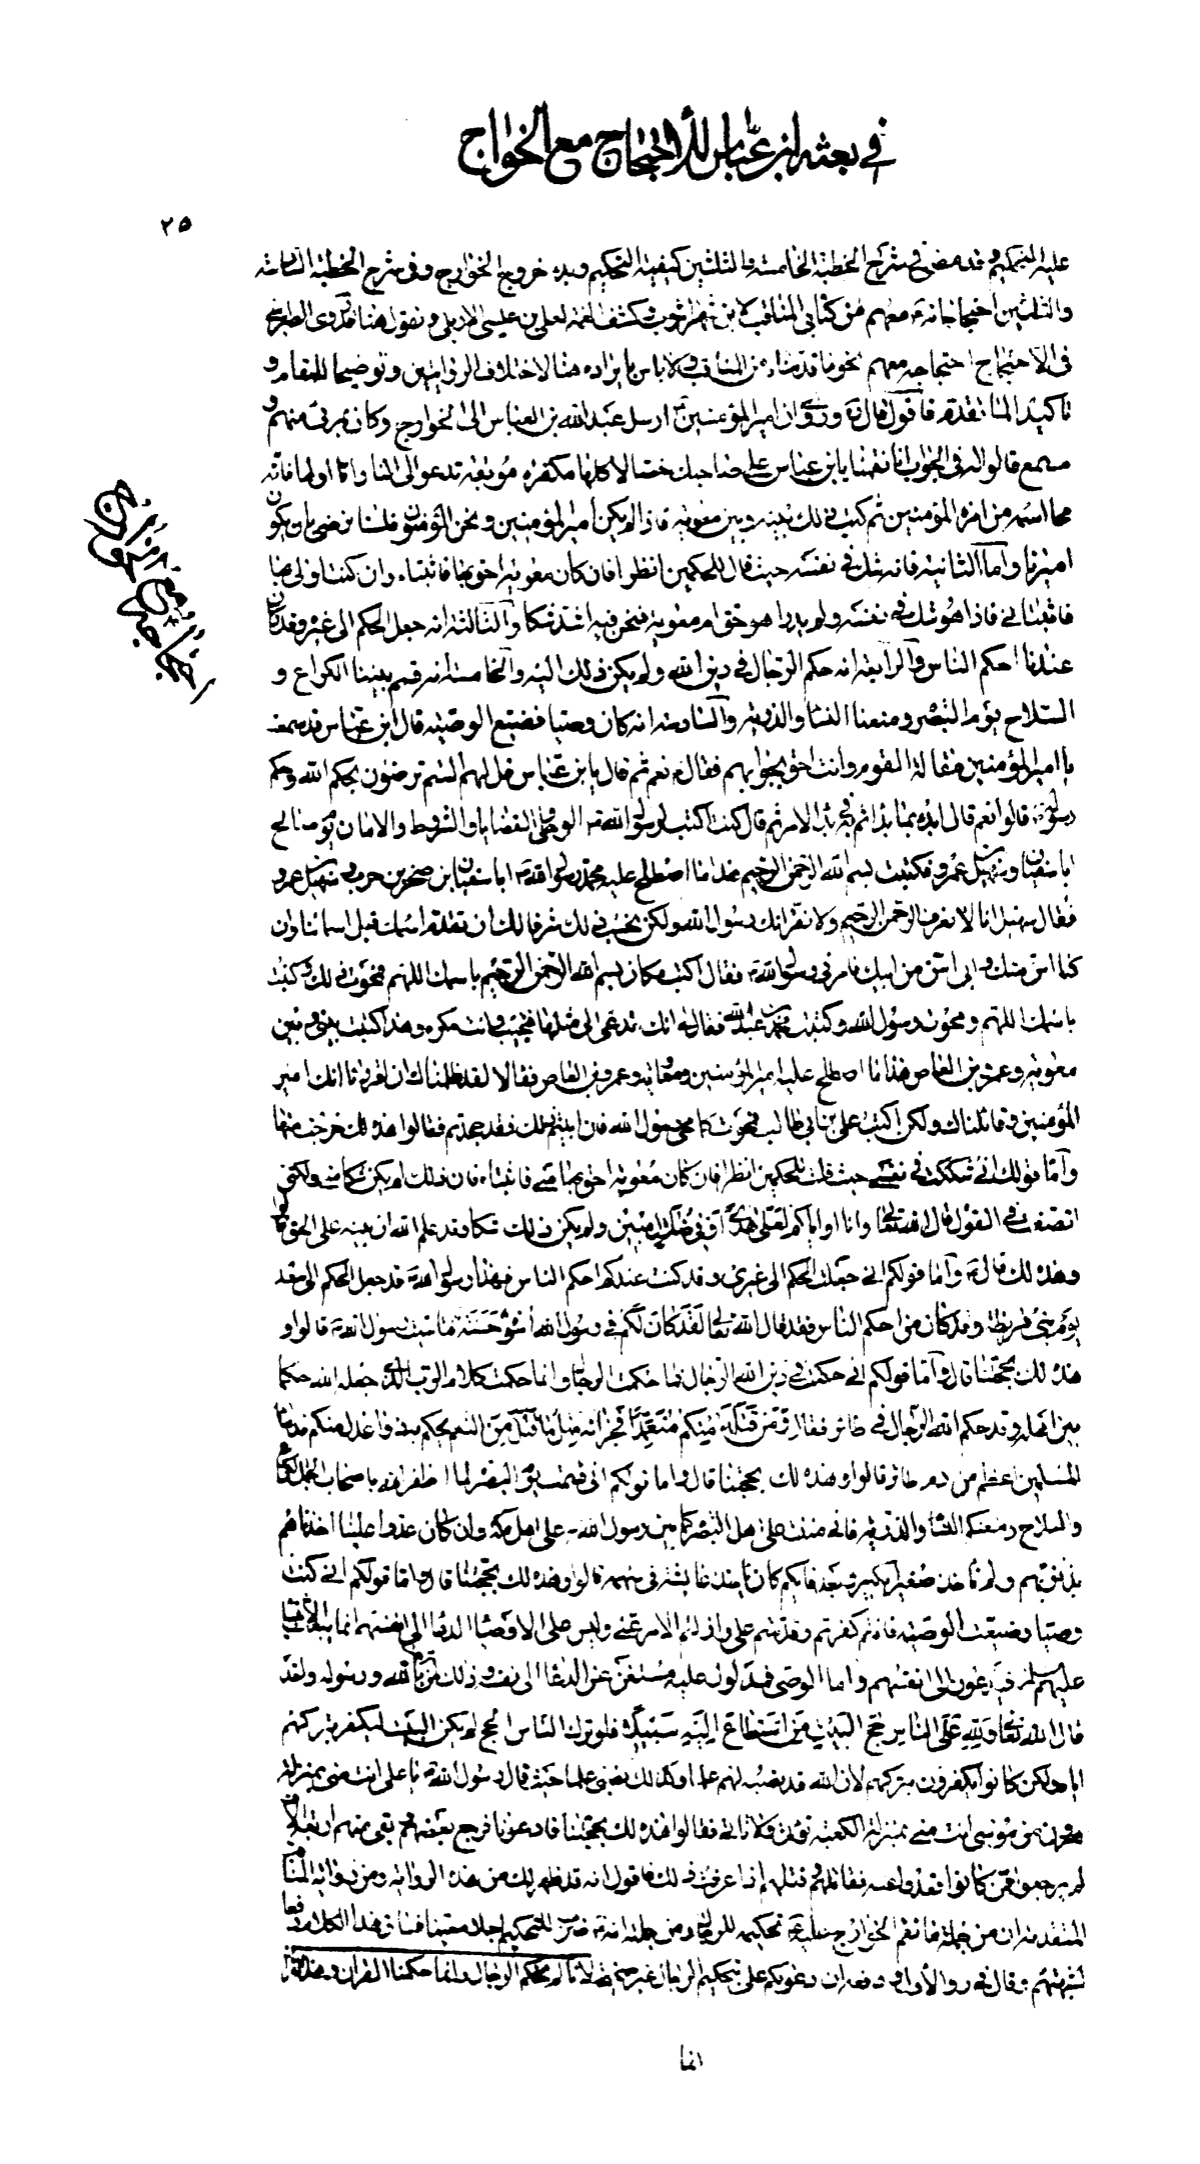 في بعثه ابن عباس للاحتجاج مع الخوارج
٢٥
عليه التحكيم وقد مضى في شرح الخطبة الخامسة والثلثين كيفية التحكيم وبدء خروج الخوارج وفي شرح الخطبة السادسة
والثلثين احتجاجاته معهم من كتابي المناقب لابن شهراشوب وكشف الغمة لعلي بن عيسى الاربلي ونقول هنا قد روى الطبرسي
في الاحتجاج احتجاجه معهم نحو ما قدمناه من المناقب ولا باس بايراده هنا لاختلاف الروايتين وتوضيحا للمقام و
تاكيدا لما تقدم فاقول قال ره وروى ان امير المؤمنين ارسل عبد الله بن العباس الى الخوارج وكان بمرئ منهم و
مسمع قالوا له في الجواب انا نقمنا يابن عباس على صاحبك خصالا كلها مكفرة موبقة تدعو الى النار اما اولها فانه
محا اسمه من امرة المؤمنين ثم كتب ذلك بينه وبين معوية فاذا لم يكن امير المؤمنين ونحن المؤمنون فلسنا نرضى بان يكون
اميرنا واما الثانية فانه شك في نفسه حيث قال للحكمين انظرا فان كان معوية احق بها فاثبتاه وان كنت اولى بها
فاثبتاني فاذا هو شك في نفسه ولم يدر اهو حق ام معوية فنحن فيه اشد شكا والثالثة انه جعل الحكم الى غيره وقد كان
عندنا احكم الناس والرابعة انه حكم الرجال في دين الله ولم يكن ذلك اليه والخامسة انه قسم بيننا الكراع و
السلاح يوم البصرة ومنعنا النساء والذرية والسادسة انه كان وصيا فضيع الوصية قال ابن عباس قد سمعت
يا امير المؤمنين مقالة القوم وانت احق بجوابهم فقال نعم ثم قال يابن عباس قل لهم الستم ترضون بحكم الله وحكم
رسوله قالوا نعم قال ابدء بما بدائم به في بدء الامر ثم قال كنت اكتب لرسول الله ص الوحي والقضايا والشروط والامان يوم صالح
ابا سفيان وسهيل بن عمرو فكتبت بسم الله الرحمن الرحيم هذا ما اصطلح عليه محمد رسول الله ص ابا سفيان صخر بن حرب وسهيل بن عمرو
فقال سهيل انا لا نعرف الرحمن الرحيم ولا نقر انك رسول الله ولكن نحسب ذلك شرفا لك ان تقدم اسمك قبل اسمائنا وان
كنا اسن منك وابي اسن من ابيك فامرني رسول الله ص فقال اكتب مكان بسم الله الرحمن الرحيم باسمك اللهم فمحوت ذلك وكتبت
باسمك اللهم ومحوت رسول الله وكتبت محمد بن عبد الله فقال لي انك تدعى الى مثلها فتجيب وانت مكره وهذا كتبت بيني وبين
معوية وعمرو بن العاص هذا ما اصطلح عليه امير المؤمنين ومعوية وعمرو بن العاص فقالا لقد ظلمناك ان اقررنا انك امير
المؤمنين وقاتلناك ولكن اكتب علي بن ابي طالب فمحوت كما محى رسول الله فان ابيتم ذلك فقد جحدتم فقالوا هذه لك خرجت منها
واما قولكم اني شككت في نفسي حيث قلت للحكمين انظرا فان كان معوية احق بها مني فاثبتاه فان ذلك لم يكن شكا مني ولكني
انصفت في القول قال الله تعالى وانا او اياكم لعلى هدى او في ضلال مبين ولم يكن ذلك شكا وقد علم الله ان نبيه على الحق قالوا
وهذه لك قال ع واما قولكم اني جعلت الحكم الى غيري وقد كنت عندكم احكم الناس فهذا رسول الله ص قد جعل الحكم الى سعد
يوم بني قريظة وقد كان من احكم الناس فقد قال الله تعالى لقد كان لكم في رسول الله اسوة حسنة فتاسيت برسول الله ص قالوا و
هذه لك بحجتنا قال واما قولكم اني حكمت في دين الله الرجال فما حكمت الرجال وانما حكمت كلام الرب الذي جعله الله حكما
بين اهله وقد حكم الله الرجال في طائر فقال ومن قتله منكم متعمدا فجزاء مثل ما قتل من النعم يحكم به ذوا عدل منكم فدماء
المسلمين اعظم من دم طائر قالوا وهذه لك بحجتنا قال واما قولكم اني قسمت يوم البصرة لما اظفرني الله باصحاب الجمل الكراع
والسلاح ومنعتكم النساء والذرية فاني مننت على اهل البصرة كما من رسول الله ص على اهل مكة وان كان عدوا علينا اخذناهم
بذنوبهم ولم ناخذ صغيرا بكبير وبعد فايكم كان ياخذ عايشة في سهمه قالوا وهذه لك بحجتنا قال واما قولكم اني كنت
وصيا فضيعت الوصية فانتم كفرتم وقدمتم علي وازلتم الامر عني وليس على الاوصياء الدعاء الى انفسهم انما يبعث الله الانبياء
عليهم السلام فيدعون الى انفسهم واما الوصي فمدلول عليه مستغن عن الدعاء الى نفسه وذلك لمن آمن بالله ورسوله ولقد
قال الله تعالى ولله على الناس حج البيت من استطاع اليه سبيلا فلو ترك الناس الحج لم يكن البيت ليكفر بتركهم
اياه ولكن كانوا يكفرون بتركهم لان الله قد نصبه لهم علما وكذلك نصبني علما حيث قال رسول الله ص يا علي انت مني بمنزلة
هرون من موسى انت مني بمنزلة الكعبة تؤتى ولا تاتي فقالوا هذه لك بحجتنا فاذعنوا فرجع بعضهم وبقي منهم اربعة آلاف
لم يرجعوا ممن كانوا قعدوا عنه فقاتلهم وقتلهم إذا عرفت ذلك فاقول انه قد ظهر لك من هذه الرواية ومن رواية المناقب
المتقدمة ان من جملة ما نقم الخوارج عليه ع تحكيمه للرجال ومن جملته انه ع ضرب للتحكيم اجلا فقال في هذا الكلام دفعا
لشبهتهم وقال في رد الأول ودفعه ان دعويكم علي تحكيم الرجال غير صحيحة لانا لم نحكم الرجال وانما حكمنا القران وهذا القران
انما
احتجاجه مع الخوارج